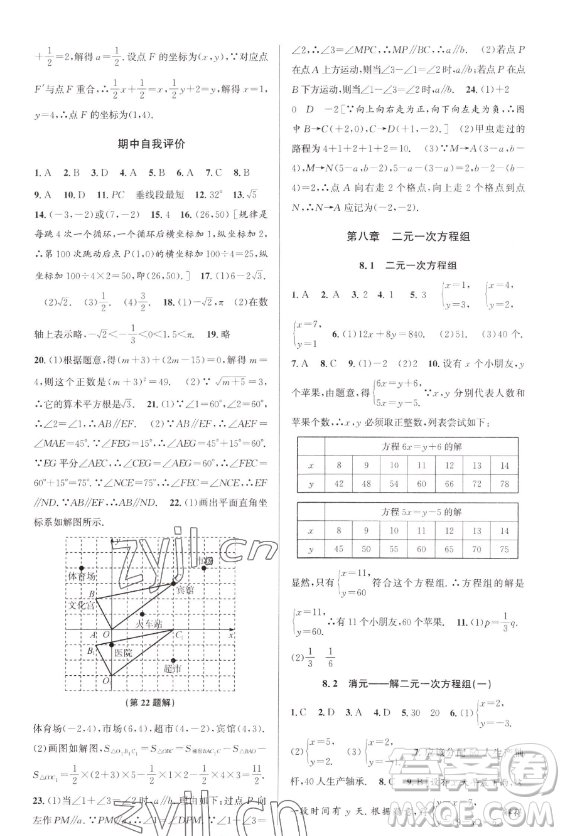 +1/2=2,解得 a=1/2. 设点 F 的坐标为(x,y),∵对应点
F′与点 F 重合,∴1/2x+1/2=x,1/2y+2=y.解得 x=
1,y=4.∴点 F 的坐标为(1,4).
期中自我评价
1. A 2. B 3. D 4. C 5. A 6. C 7. C 8. B
9. A 10. D 11. PC 垂线段最短 12. 32° 13. √5
14. (-3,-2)或(7,-2) 15. 4 16. (26,50)[规律是
每跳 4 次一个循环,一个循环横坐标加 1,纵坐标加 2,∴
第 100 次跳动后点 P(1,0)横坐标 100÷4=25,纵坐标
100÷2=50,∴(26,50).] 17. (1)6-2√3.
(2)√2. (3)-1/2. (4)3/2. 18. (1)<,>. (2)在数
轴上表示略,-√2<-1/3<0<1.5<π. 19. 略
20. (1)根据题意,得(m+3)+(2m-15)=0.解得 m=
4,则这个正数是(m+3)²=49. (2)∵√(m+5)=3,∴
它的算术平方根是√3. 21. (1)∵∠1=60°,∠2=60°,
∴∠2=∠1.∴AB∥EF. (2)∵AB∥EF,∴∠AEF=
∠MAE=45°.∵∠FEG=15°,∴∠AEG=45°+15°=60°.
∵EG 平分∠AEC,∴∠CEG=∠AEG=60°,∴∠CEF=
60°+15°=75°.∵∠NCE=75°,∴∠NCE=∠CEF.∴
EF∥CD.∵AB∥EF,∴AB∥CD. 22. (1)画出平面直角坐
标系如解图所示.
体育场
宾馆
文化宫
B
火车站
A
O
C
x
医院
B₁
超市
(第 22 题解)
体育场(-2,4),市场(6,4),超市(2,-2),宾馆(4,3).
=1/2×(2+3)×5-1/2×2×1-1/2×3×4=11/2.
23. (1)如解图,过点 P 在
左作 PM∥a,∴∠1=∠APM.∵∠3=∠1+
∠2,∴∠2=∠MPC,∴PM∥b,∴a∥b. (2)若点 P
在点 A 上方运动,则当∠3=∠2-∠1 时,a∥b;若点 P
在点 B 下方运动,则当∠3=∠1-∠2 时,a∥b. 24. (1)+2
0 D -2[∵向上向右走为正,向下向左走为负,∴图
中 B→C(+2,0),C→D(+1,-2).] (2)甲虫走过的
路程为 4+1+2+1+2=10. (3)∵M→A(3-a,b-
4),M→N(5-a,b-2),∴5-a-(3-a)=2,b-2-(b-
4)=2,∴点 A 向右走 2 个格点,向上走 2 个格点到点
N,∴N→A 应记为(-2,-2).
第八章 二元一次方程组
8.1 二元一次方程组
1. A 2. A 3. 2 4. 1 5. {x=1, y=3, {x=4, y=2,
{x=7, y=1 6. (1)12x+8y=840. (2)51. (3)40 个.
7. A 8. C 9. (1)-2 (2)2 10. 设有 x 个小朋友,y
个苹果,由题意,得{6x=y+6, 5x=y-5.∵x,y 分别代表人数和
苹果个数,∴x,y 必须取正整数,列表尝试如下:
方程 6x=y+6 的解
x 8 9 10 11 12 13 14
y 42 48 54 60 66 72 78
方程 5x=y-5 的解
x 8 9 10 11 12 13 14
y 45 50 55 60 65 70 75
显然,只有{x=11, y=60适合这个方程组.∴方程组的解是
{x=11, y=60.∴有 11 个小朋友,60 个苹果. 11. (1)p=1/9.
(2)1/3 1/6
8.2 消元——解二元一次方程组(一)
1. C 2. D 3. A 4. D 5. 30 20 6. (1){x=5, y=0.